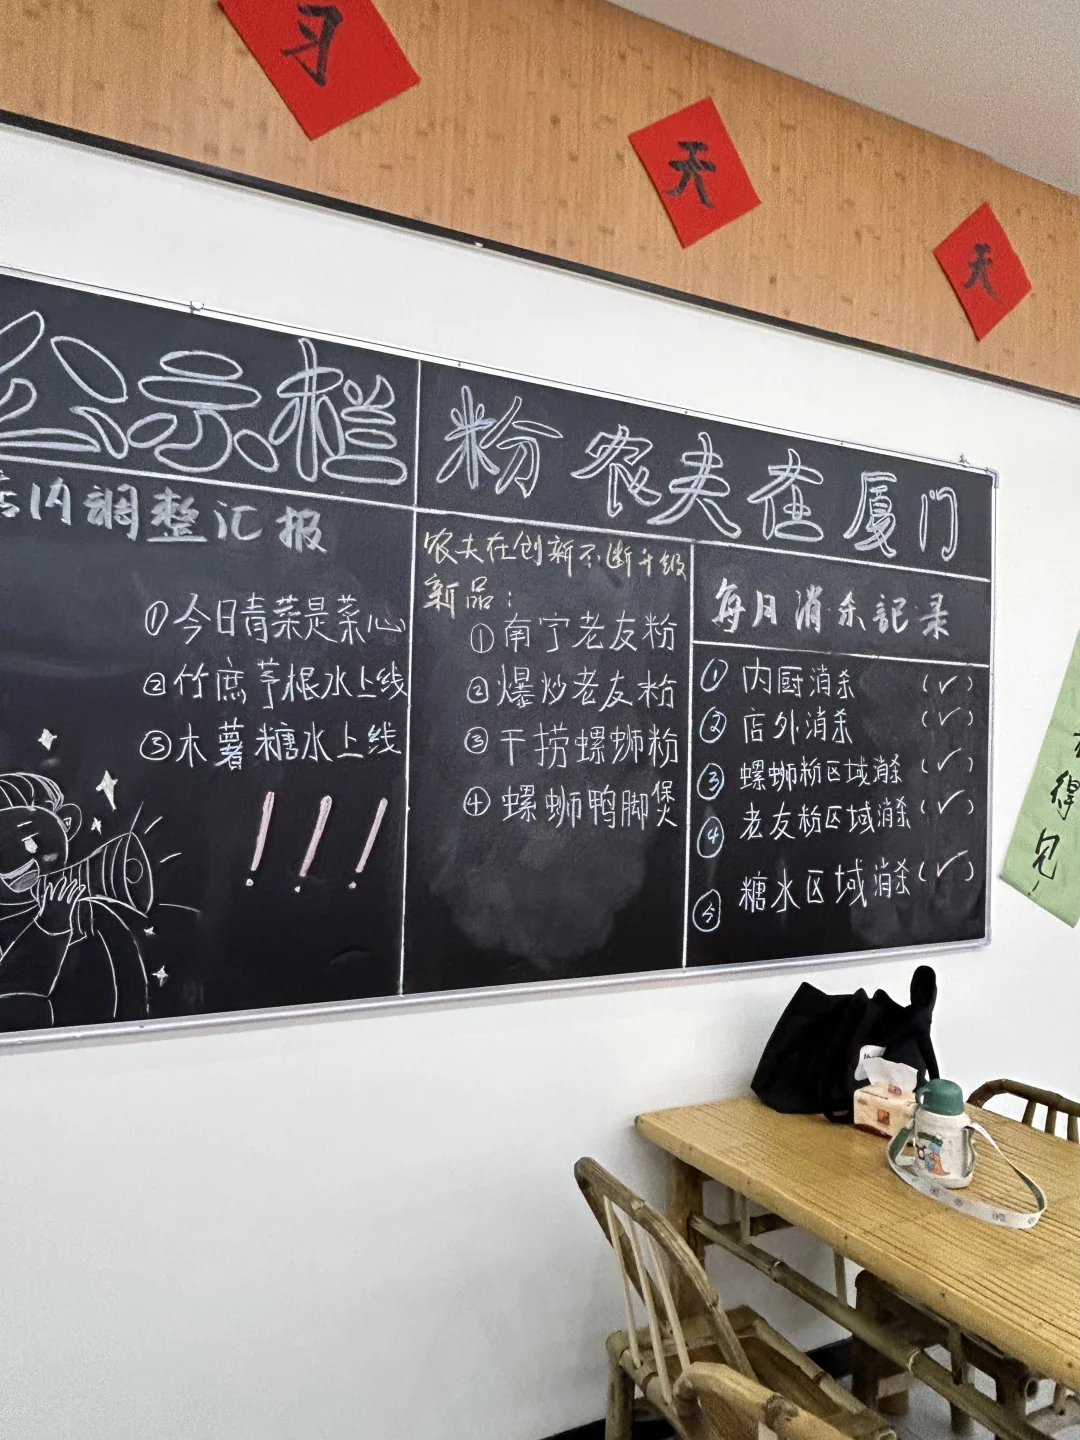 习
天
天
公示栏
店内調整汇报
①今日青菜是菜心
②竹庶芋根水上线
③木薯糖水上线
!!!
粉农夫在厦门
农夫在创新不断升级
新品：
①南宁老友粉
②爆炒老友粉
③干捞螺蛳粉
④螺蛳鸭脚煲
每月消杀記录
①内厨消杀（✓）
②店外消杀（✓）
③螺蛳粉区域消杀（✓）
④老友粉区域消杀（✓）
⑤糖水区域消杀（✓）
得见!